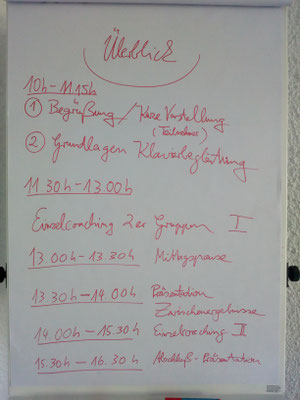 Überblick
10h - 11.15h
① Begrüßung / Kurze Vorstellung
(Teilnehmer)
② Grundlagen Klavierbegleitung
11.30h - 13.00h
Einzelcoaching 2er Gruppen I
13.00h - 13.30h Mittagspause
13.30h - 14.00h Präsentation
Zwischenergebnisse
14.00h - 15.30h Einzelcoaching II
15.30h - 16.30h Abschluß - Präsentation